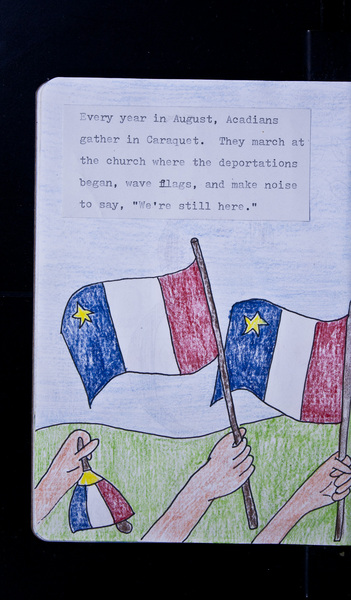 Every year in August, Acadians
gather in Caraquet. They march at
the church where the deportations
began, wave flags, and make noise
to say, "We're still here."